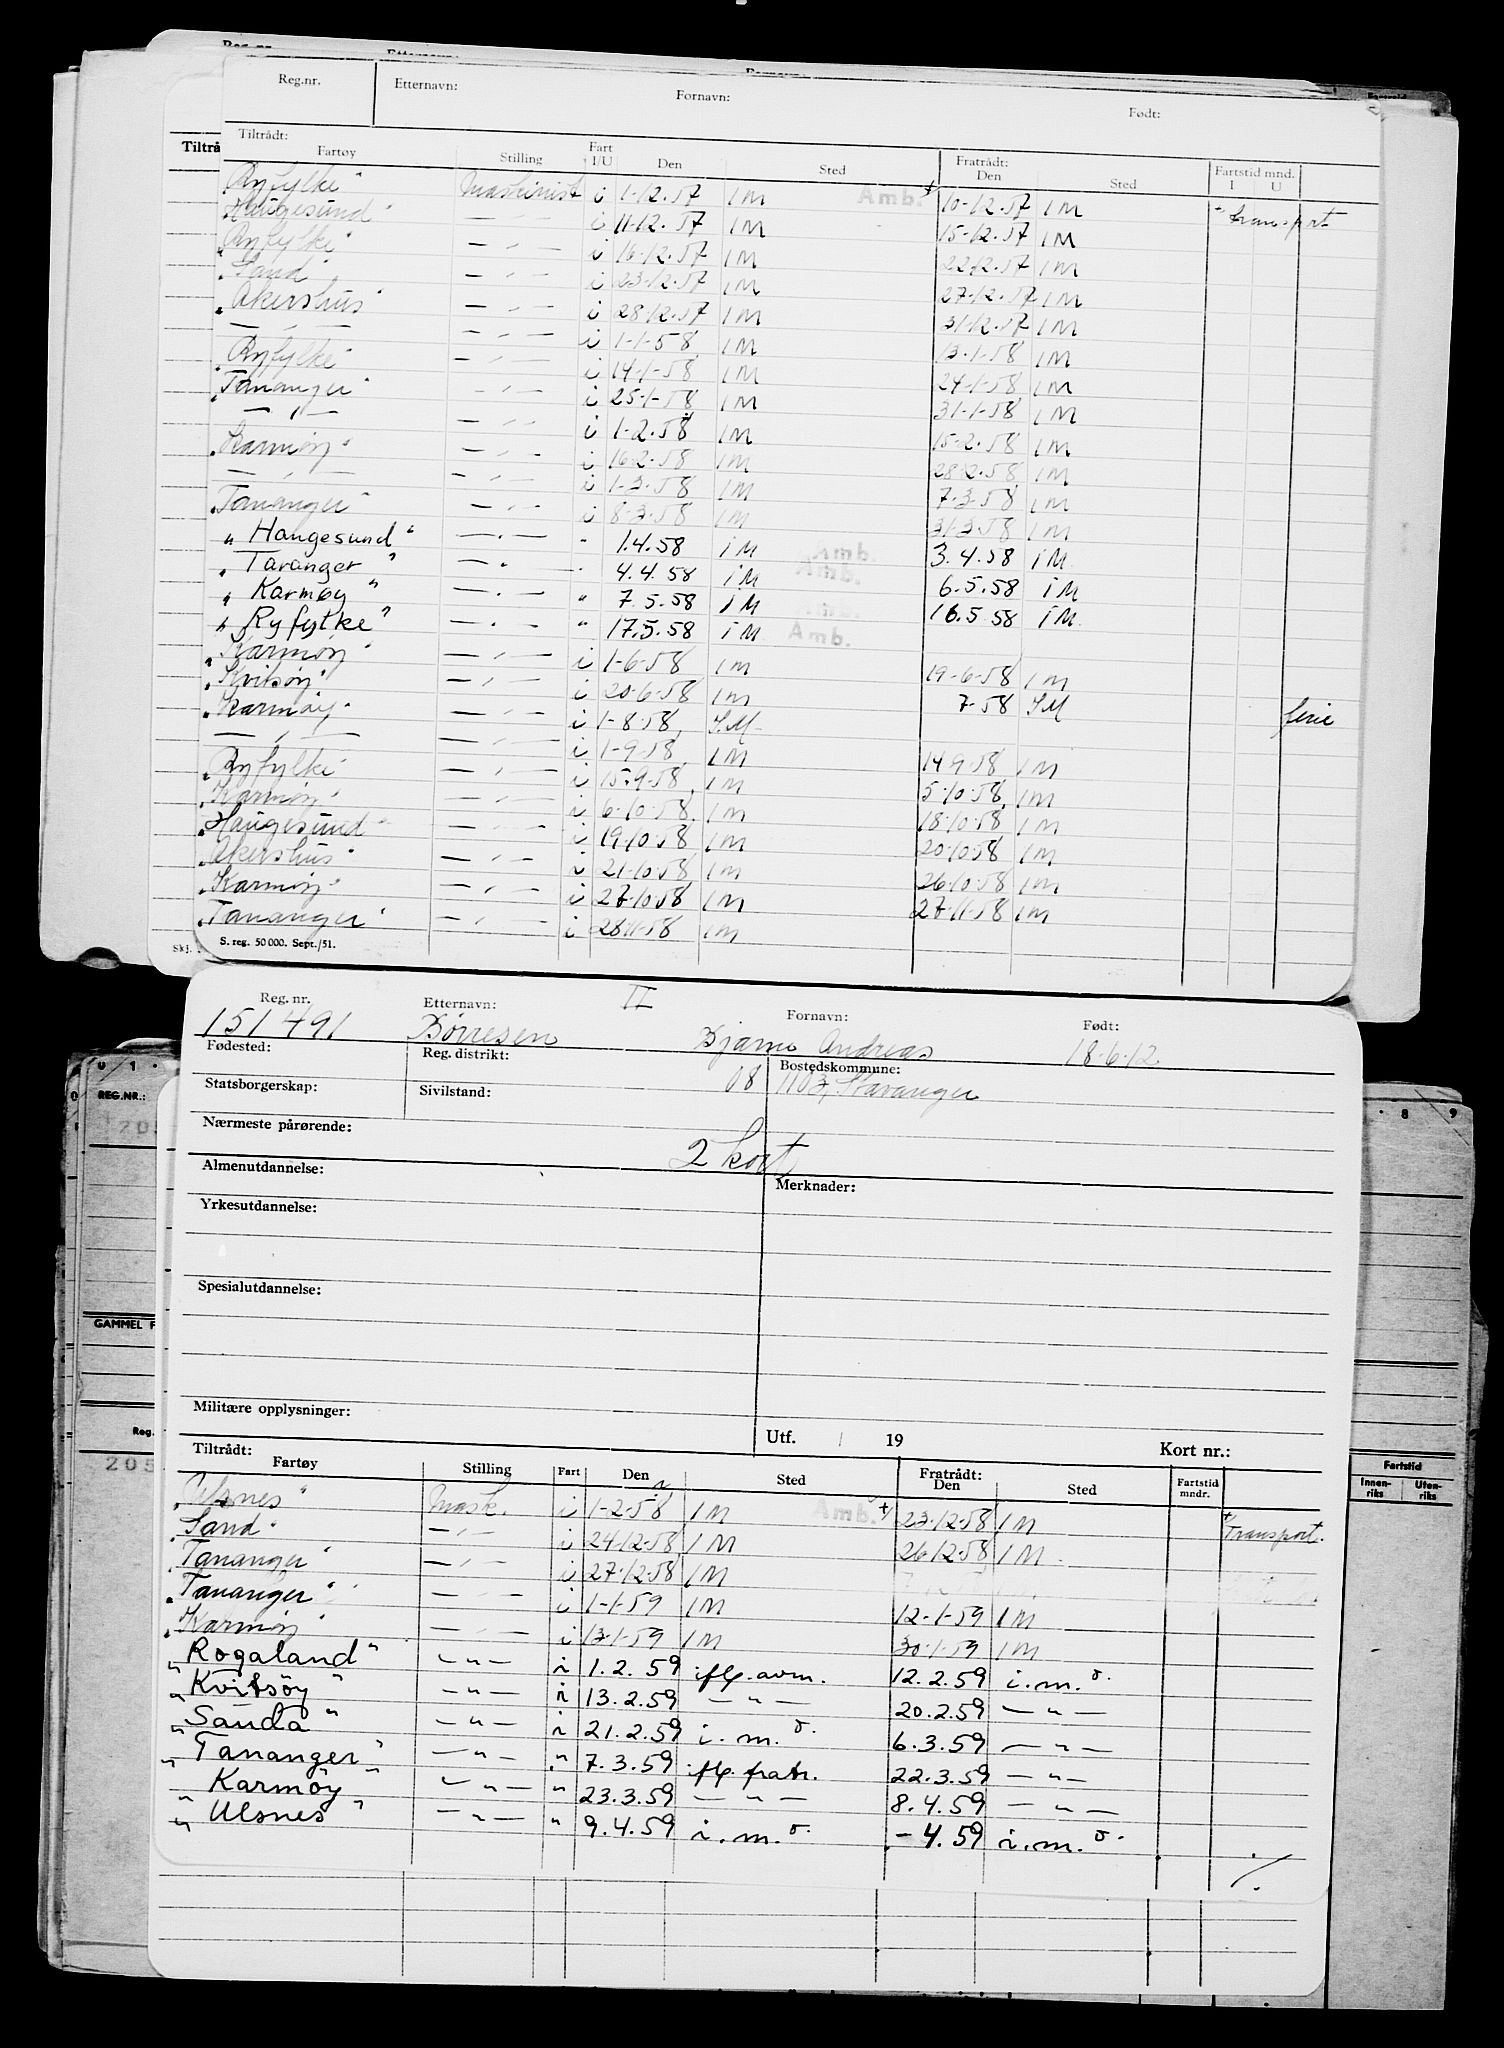 Reg.nr. Etternavn: Fornavn: Født:
Tiltrådt: Fartøy Stilling Fart I/U Den Sted Fratrådt: Den Sted Fartstid mnd. I U
Ryfylke" Maskinist i 1-12.57 IM Amb. + 10-12.57 IM + transport
Haugesund" — " — i 11-12.57 IM 15-12.57 IM
Ryfylke" — " — i 16-12.57 IM 22-12.57 IM
"Sand" — " — i 23-12.57 IM 27-12.57 IM
"Akershus" — " — i 28-12.57 IM 31-12.57 IM
— " — — " — i 1-1-58 IM 13-1-58 IM
Ryfylke" — " — i 14-1-58 IM 24-1-58 IM
"Tananger" — " — i 25-1-58 IM 31-1-58 IM
— " — — " — i 1-2.58 IM 15-2.58 IM
"Karmøy" — " — i 16-2-58 IM 28-2.58 IM
— " — — " — i 1-3-58 IM 7-3-58 IM
"Tananger" — " — i 8-3-58 IM 31-3-58 IM
"Haugesund" — " — " 1.4.58 iM Amb. 3.4.58 iM
"Tananger" — " — " 4.4.58 iM Amb. 6.5.58 iM
"Karmøy" — " — " 7.5.58 iM Amb. 16.5.58 iM
"Ryfylke" — " — " 17.5.58 iM Amb.
"Karmøy" — " — i 1-6-58 IM 19-6-58 IM
"Kvitsøy" — " — i 20-6-58 IM 7-58 S.M ferie
"Karmøy" — " — i 1-8-58 S.M
— " — — " — i 1-9-58 IM 14-9-58 IM
"Ryfylke" — " — i 15-9-58 IM 5-10-58 IM
"Karmøy" — " — i 6-10-58 IM 18-10-58 IM
"Haugesund" — " — i 19-10-58 IM 20-10-58 IM
"Akershus" — " — i 21-10-58 IM 26-10-58 IM
"Karmøy" — " — i 27-10-58 IM 27-11-58 IM
"Tananger" — " — i 28-11-58 IM
S. reg. 50 000. Sept./51.
Reg. nr. Etternavn: II Fornavn: Født:
151491 Børresen Bjarne Andreas 18-6-12
Fødested: Reg. distrikt: 08 Bostedskommune: 1103, Stavanger
Statsborgerskap: Sivilstand:
Nærmeste pårørende:
2 kort
Almenutdannelse: Merknader:
Yrkesutdannelse:
Spesialutdannelse:
Militære opplysninger:
Utf. / 19 Kort nr.:
Tiltrådt: Fartøy Stilling Fart Den Sted Fratrådt: Den Sted Fartstid mndr.
"Ulsnes" Mask. i 1-2-58 IM Amb. + 23-12-58 IM + Transport.
"Sand" — " — i 24-12-58 IM 26-12-58 IM
"Tananger" — " — i 27-12-58 IM
"Tananger" — " — i 1-1-59 IM 12-1-59 IM
"Karmøy" — " — i 13-1-59 IM 30-1-59 IM
"Rogaland" — " — i 1.2.59 ifl. avm. 12.2.59 i.m.o.
"Kvitsøy" — " — i 13.2.59 — " — 20.2.59 — " —
"Sanda" — " — i 21.2.59 i.m.o. 6.3.59 — " —
"Tananger" — " — " 7.3.59 ifl. fratr. 22.3.59 — " —
"Karmøy" — " — " 23.3.59 — " — 8.4.59 — " —
"Ulsnes" — " — " 9.4.59 i.m.o. - 4.59 i.m.o.
./.
REG.NR.:
GAMMEL F
Reg.
Fartstid
Innen-riks Uten-riks